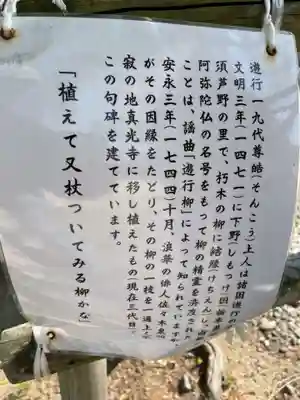 遊行一九代尊皓(そんこう)上人は諸国遊行の
文明三年(一四七一)に下野(しもつけ)国
須芦野の里で、朽木の柳に結縁(けちえん)し
阿弥陀仏の名号をもって柳の精霊を済度された
ことは、謡曲「遊行柳」によって知られていますが
安永三年(一七四四)十月、浪華の俳人佐々木泉
がその因縁をたどり、その柳の一枝を一遍上人
寂の地真光寺に移し植えたもの(現在三代目)
この句碑を建てています。
「植えて又杖ついてみる柳かな